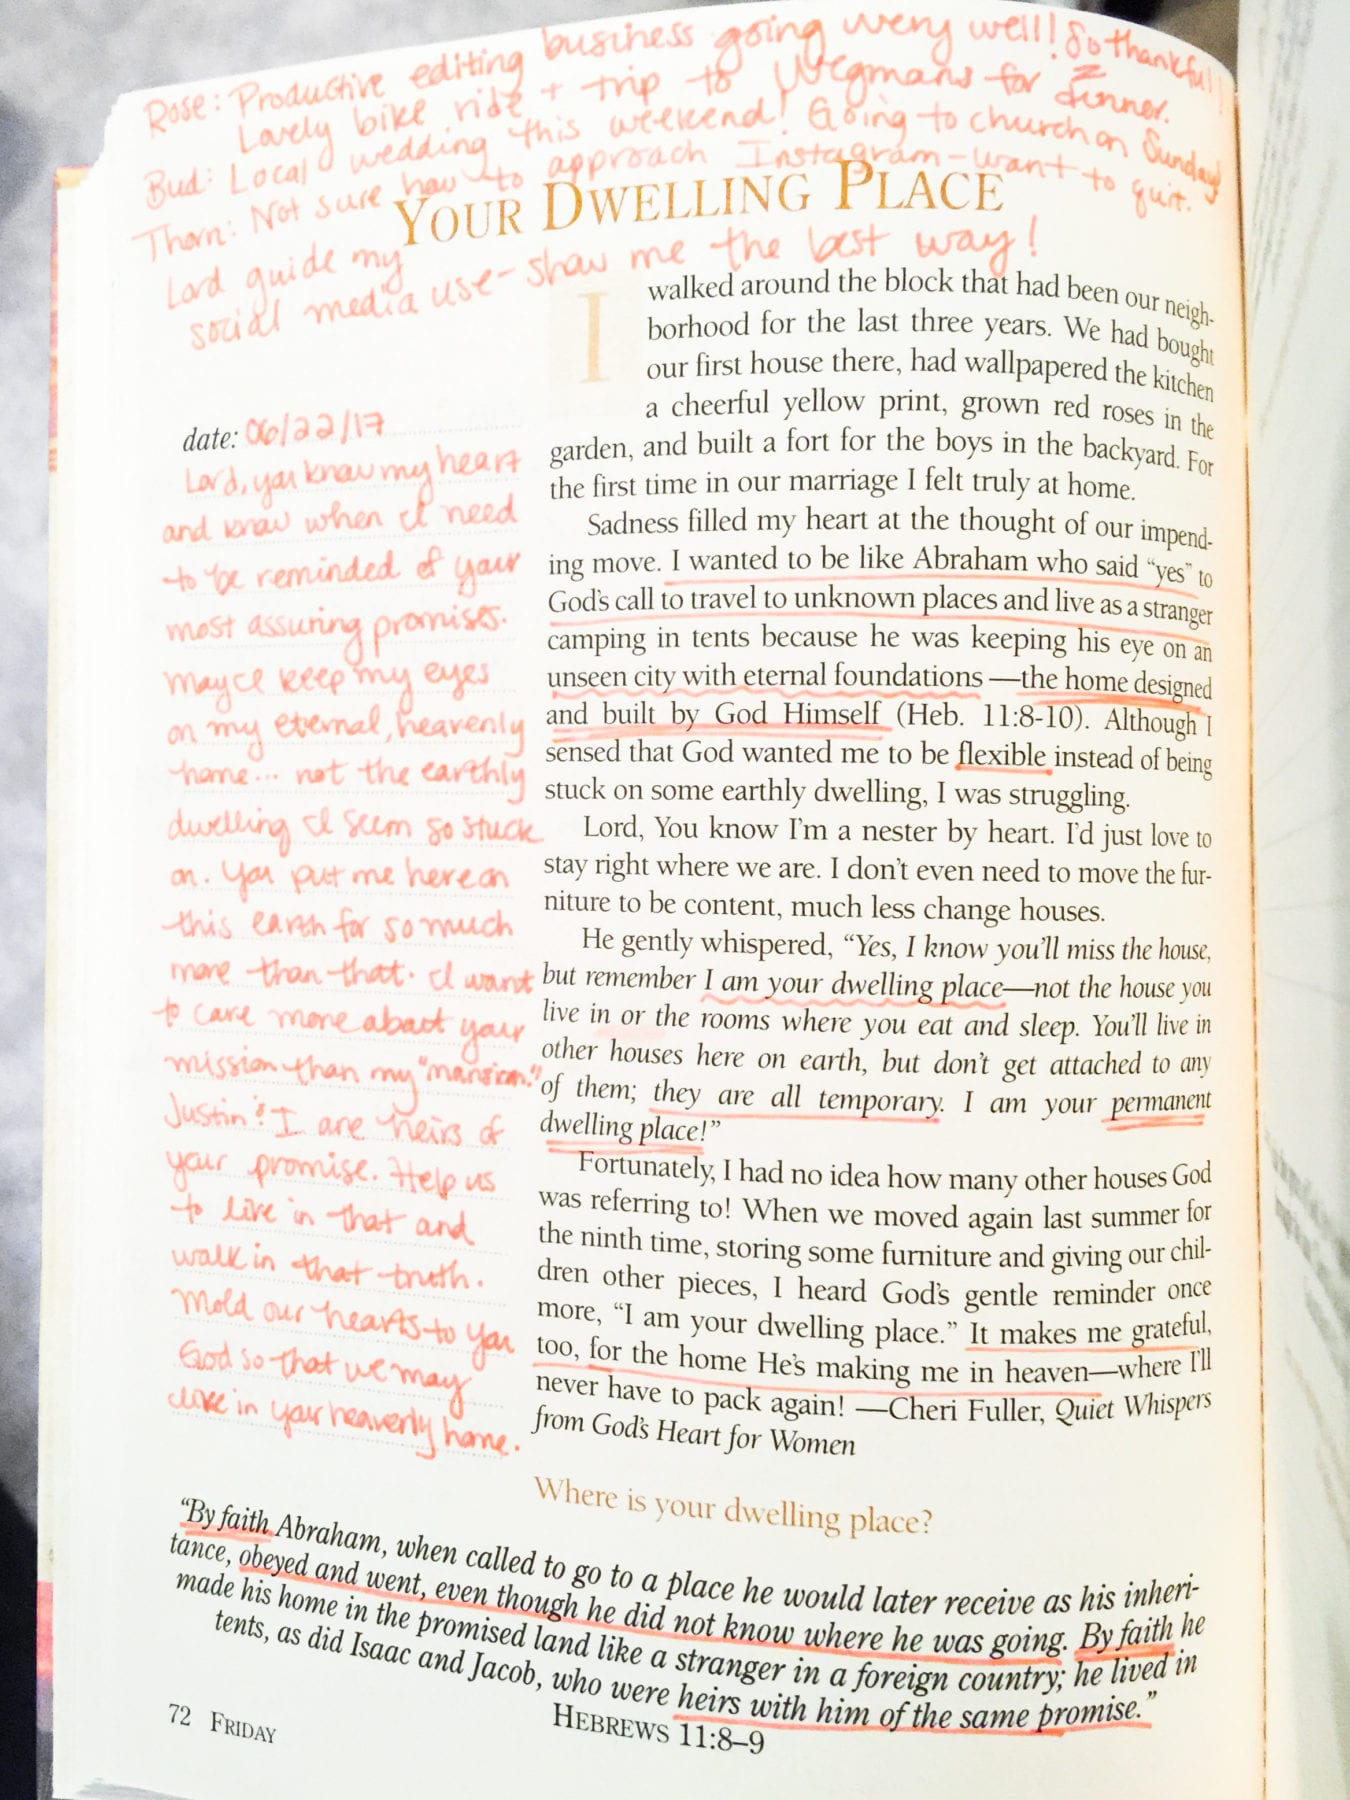 Rose: Productive editing business going very well! So thankful!
Lovely bike ride + trip to Wegmans for dinner.
Bud: Local wedding this weekend! Going to church on Sunday!
Thorn: Not sure how to approach Instagram - want to quit.
Lord guide my
social media use - show me the best way!
YOUR DWELLING PLACE
I walked around the block that had been our neigh-
borhood for the last three years. We had bought
our first house there, had wallpapered the kitchen
a cheerful yellow print, grown red roses in the
garden, and built a fort for the boys in the backyard. For
the first time in our marriage I felt truly at home.
Sadness filled my heart at the thought of our impend-
ing move. I wanted to be like Abraham who said “yes” to
God’s call to travel to unknown places and live as a stranger
camping in tents because he was keeping his eye on an
unseen city with eternal foundations—the home designed
and built by God Himself (Heb. 11:8-10). Although I
sensed that God wanted me to be flexible instead of being
stuck on some earthly dwelling, I was struggling.
Lord, You know I’m a nester by heart. I’d just love to
stay right where we are. I don’t even need to move the fur-
niture to be content, much less change houses.
He gently whispered, “Yes, I know you’ll miss the house,
but remember I am your dwelling place—not the house you
live in or the rooms where you eat and sleep. You’ll live in
other houses here on earth, but don’t get attached to any
of them; they are all temporary. I am your permanent
dwelling place!”
Fortunately, I had no idea how many other houses God
was referring to! When we moved again last summer for
the ninth time, storing some furniture and giving our chil-
dren other pieces, I heard God’s gentle reminder once
more, “I am your dwelling place.” It makes me grateful,
too, for the home He’s making me in heaven—where I’ll
never have to pack again! —Cheri Fuller, Quiet Whispers
from God’s Heart for Women
date: 06/22/17
Lord, you know my heart
and know when I need
to be reminded of your
most assuring promises.
May I keep my eyes
on my eternal, heavenly
home... not the earthly
dwelling I seem so stuck
on. You put me here on
this earth for so much
more than that. I want
to care more about your
mission than my "mansion."
Justin & I are heirs of
your promise. Help us
to live in that and
walk in that truth.
Mold our hearts to you
God so that we may
live in your heavenly home.
Where is your dwelling place?
“By faith Abraham, when called to go to a place he would later receive as his inheri-
tance, obeyed and went, even though he did not know where he was going. By faith he
made his home in the promised land like a stranger in a foreign country; he lived in
tents, as did Isaac and Jacob, who were heirs with him of the same promise.”
HEBREWS 11:8–9
72 FRIDAY